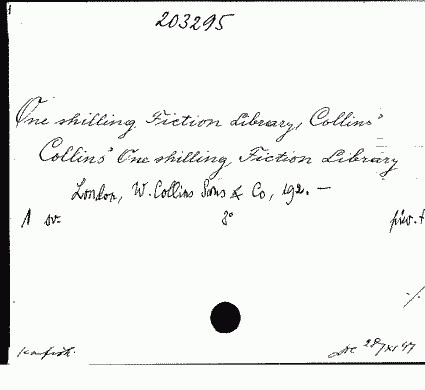 203295
One shilling Fiction Library, Collins'
Collins' One shilling Fiction Library
London, W. Collins Sons & Co, 192. —
1 sv. 8°